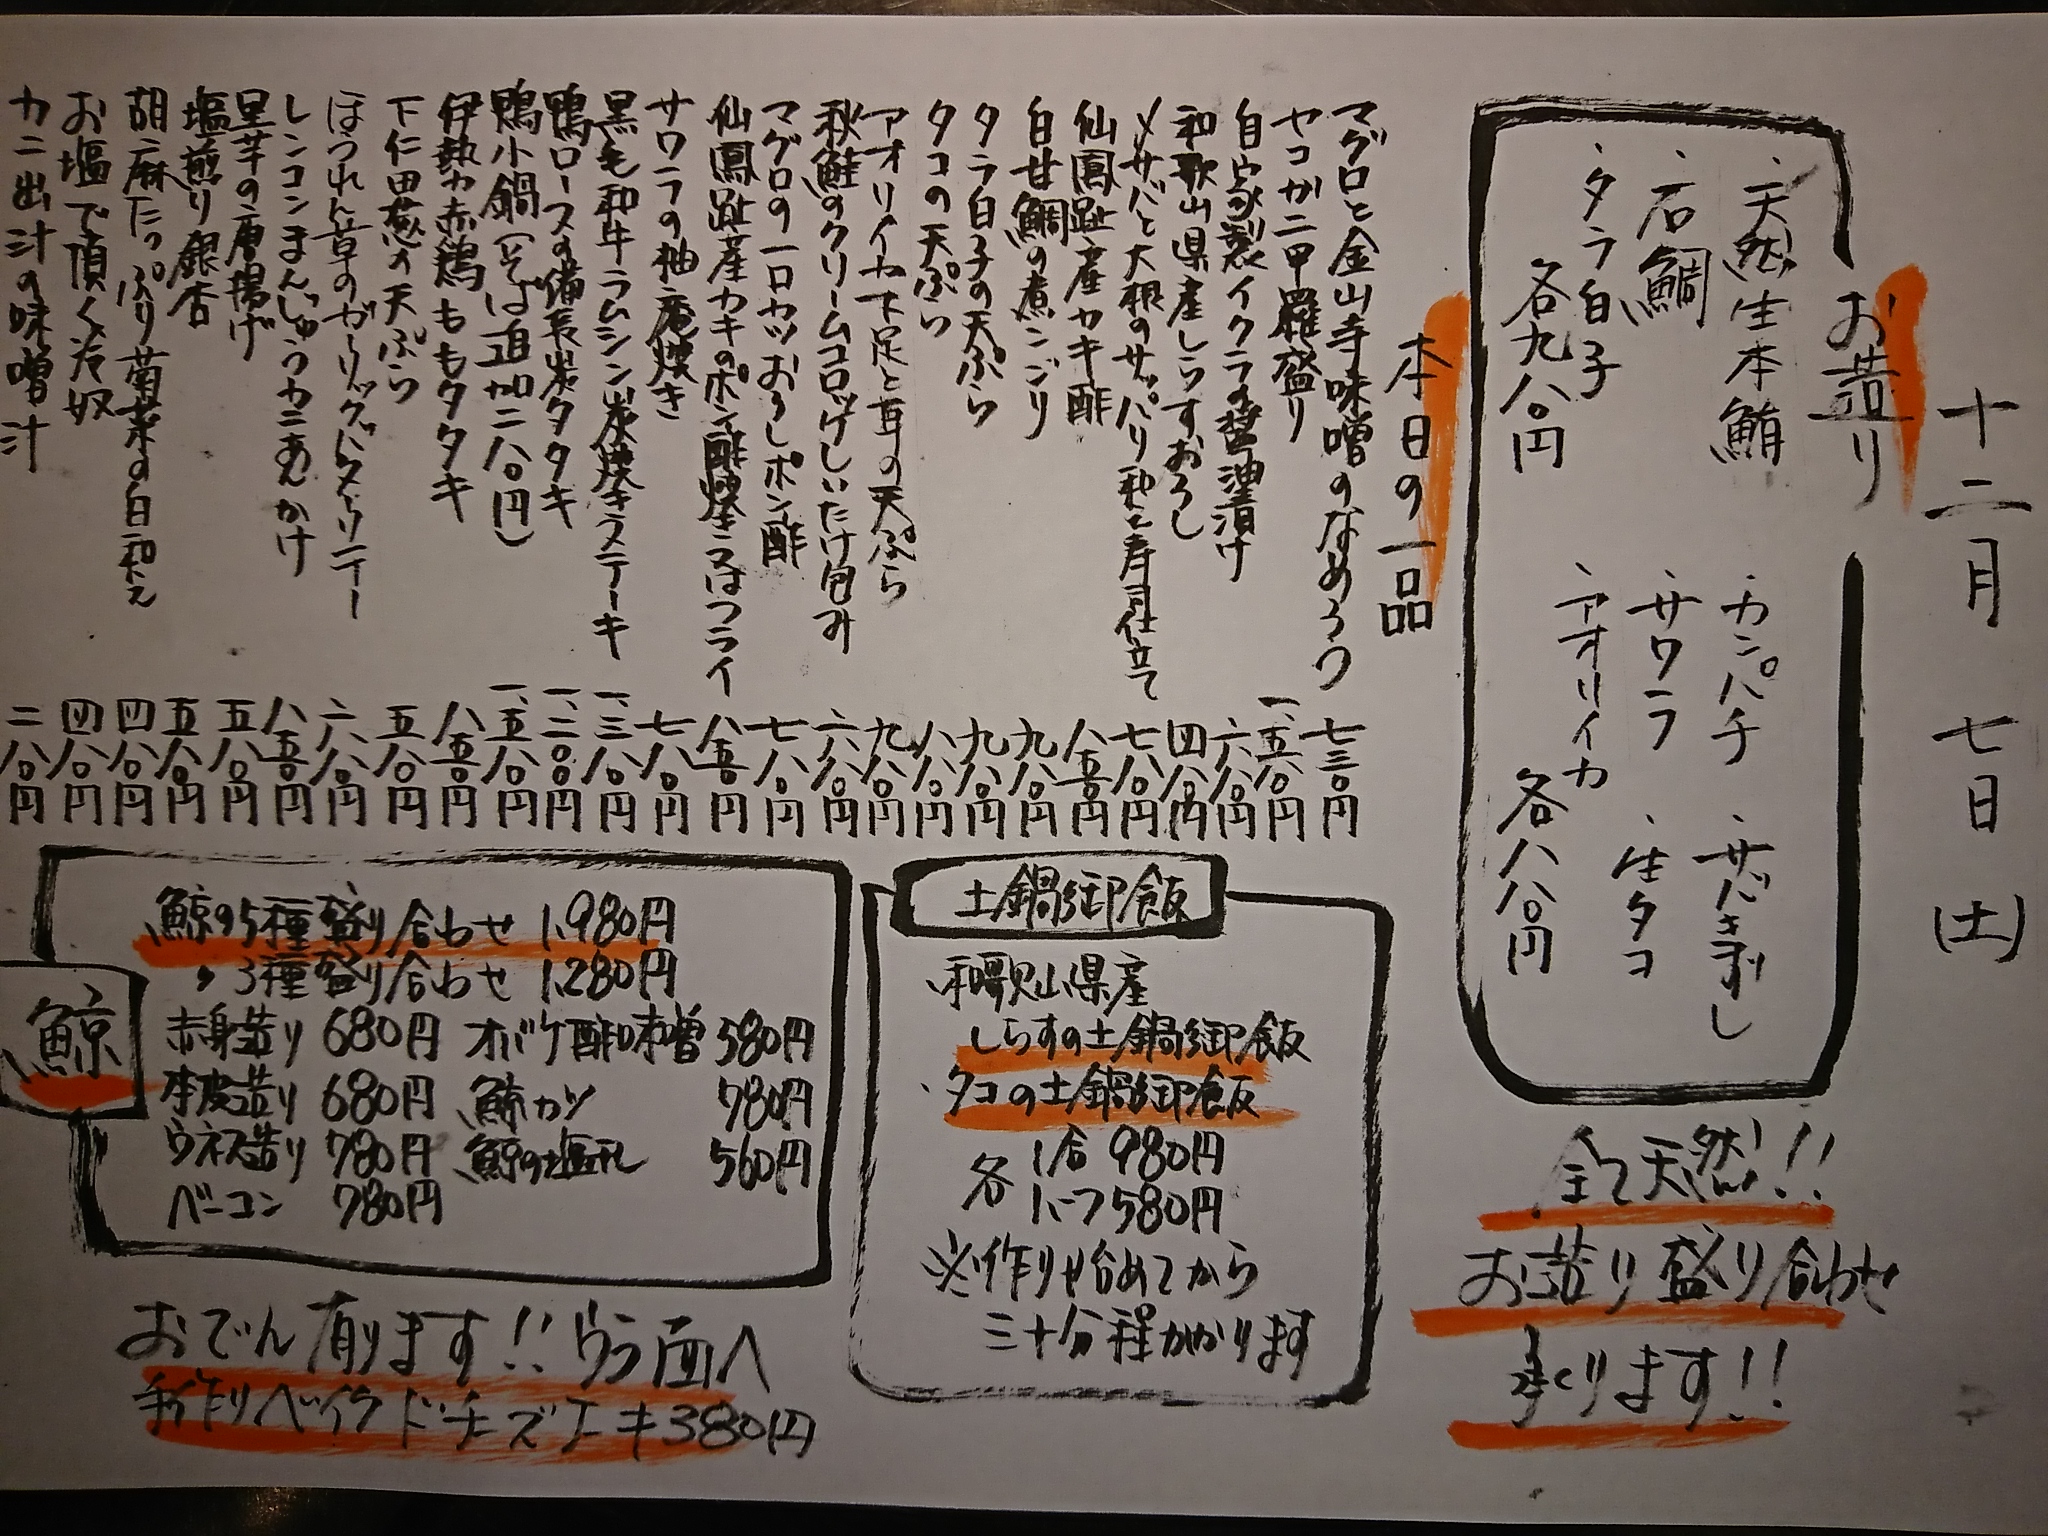 十二月七日(土)
お造り
・天然生本鮪
・石鯛
・タラ白子
各九八〇円
・カンパチ
・サワラ
・アオリイカ
・サバきずし
・生タコ
各八八〇円
全て天然!!
お造り盛り合わせ
承ります!!
本日の一品
マグロと金山寺味噌のなめろう 七三〇円
ヤコガニ甲羅盛り 一、五八〇円
自家製イクラの醤油漬け 六八〇円
和歌山県産しらすおろし 四八〇円
〆サバと大根のサッパリ和え寿司仕立て 七八〇円
仙鳳趾産カキ酢 八五〇円
白甘鯛の煮こごり 九八〇円
タラ白子の天ぷら 九八〇円
タコの天ぷら 八八〇円
アオリイカ下足と耳の天ぷら 九八〇円
秋鮭のクリームコロッケしいたけ包み 六八〇円
マグロの一口カツおろしポン酢 七八〇円
仙鳳趾産カキのポン酢焼き又はフライ 八五〇円
サワラの柚庵焼き 七八〇円
黒毛和牛ラムシン炭焼きステーキ 一、三八〇円
鴨ロースの備長炭タタキ 一、二〇〇円
鴨小鍋(そば追加二八〇円) 一、五八〇円
伊勢赤鶏ももタタキ 八五〇円
下仁田葱の天ぷら 五八〇円
ほうれん草のガーリックバターソテー 六八〇円
レンコンまんじゅうカニあんかけ 八五〇円
里芋の唐揚げ 五八〇円
塩煎り銀杏 五八〇円
胡麻たっぷり菊菜の白和え 四八〇円
お塩で頂く冷奴 四八〇円
カニ出汁の味噌汁 二八〇円
土鍋御飯
和歌山県産
しらすの土鍋御飯
・タコの土鍋御飯
各 1合 980円
1ハーフ 580円
※作り始めてから
三十分程かかります
鯨
鯨の5種盛り合わせ 1,980円
〃 3種盛り合わせ 1,280円
赤身造り 680円 オバケ酢味噌 580円
本皮造り 680円 鯨カツ 780円
ウネス造り 780円 鯨の塩パ 560円
ベーコン 780円
おでん有ります!!ウラ面へ
手作りベイクドチーズケーキ380円